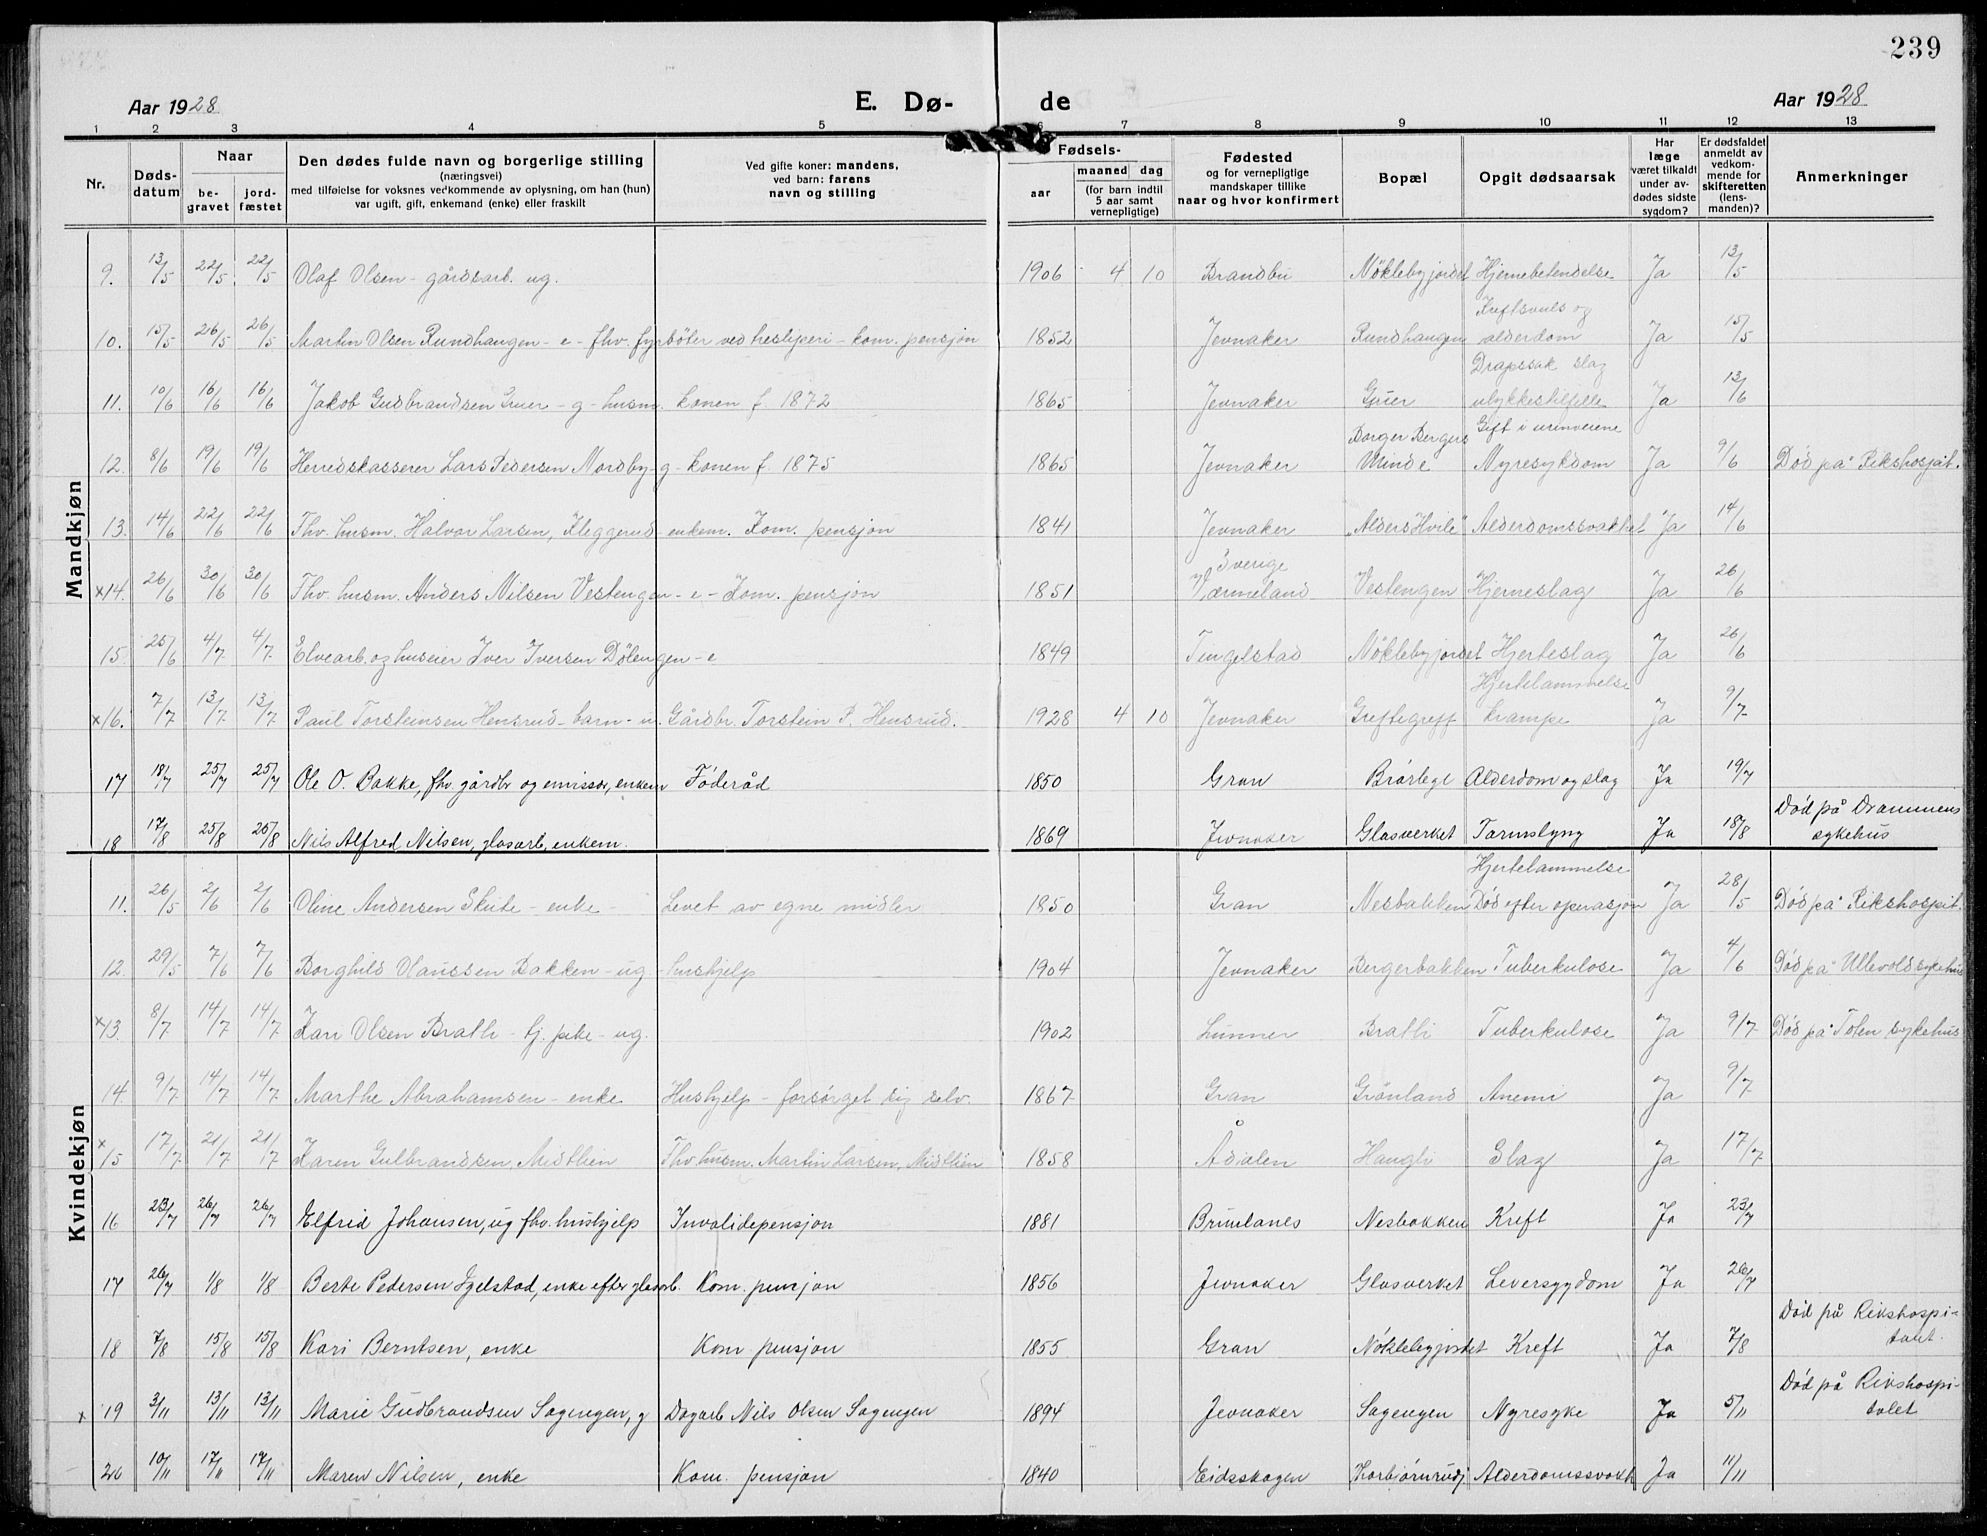 239
Aar 1928 E. Dø- de Aar 1928
1 2 3 4 5 6 7 8 9 10 11 12 13
Nr. Døds-datum Naar be-gravet jord-fæstet Den dødes fulde navn og borgerlige stilling (næringsvei) med tilføielse for voksnes vedkommende av oplysning, om han (hun) var ugift, gift, enkemand (enke) eller fraskilt Ved gifte koner: mandens, ved barn: farens navn og stilling Fødsels- aar maaned dag (for barn indtil 5 aar samt vernepligtige) Fødested og for vernepligtige mandskaper tillike naar og hvor konfirmert Bopæl Opgit dødsaarsak Har læge været tilkaldt under av-dødes sidste sygdom? Er dødsfaldet anmeldt av vedkom-mende for skifteretten (lens-manden)? Anmerkninger
Mandkjøn
9. 13/5 22/5 22/5 Olaf Olsen - gårdsarb. ug. 1906 4 10 Brandbu Nøklebyjordet Hjernebetendelse Ja 13/5
10. 15/5 26/5 26/5 Martin Olsen Rundhaugen - e - fhv. fyrbøter ved tresliperi - kom. pensjon 1852 Jevnaker Rundhaugen Kreftsvuls og alderdom Ja 15/5
11. 10/6 16/6 16/6 Jakob Gudbrandsen Gruer - g - husm. konen f. 1872 1865 Jevnaker Gruer Drapssak slag ulykkestilfelle Ja 13/6
12. 8/6 19/6 19/6 Herredskasserer Lars Pedersen Nordby - g - konen f. 1875 1865 Jevnaker Borger Bergers Minde Gift i urinveiene Nyresykdom Ja 9/6 Død på Rikshospit.
13. 14/6 22/6 22/6 Fhv. husm. Halvor Larsen, Kleggerud - enkem. Kom. pensjon 1841 Jevnaker "Alders Hvile" Alderdomssvakhet Ja 14/6
x14. 26/6 30/6 30/6 Fhv. husm. Anders Nilsen Vestengen - e - Kom. pensjon 1851 Sverige Værmeland Vestengen Hjerneslag Ja 26/6
15. 25/6 4/7 4/7 Elvearb. og huseier Iver Iversen Dølengen - e 1849 Tingelstad Nøklebyjordet Hjerteslag Ja 26/6
x16. 7/7 13/7 13/7 Paul Torsteinsen Hensrud - barn - u. Gårdbr. Torstein P. Hensrud. 1928 4 10 Jevnaker Greftegreff Hjertelammelse krampe Ja 9/7
17 18/7 25/7 25/7 Ole O. Bakke, fhv. gårdbr og emissær, enkem Føderåd 1850 Gran Brørlege Alderdom og slag Ja 19/7
18 17/8 25/8 25/8 Nils Alfred Nilsen, glasarb, enkem. 1869 Jevnaker Glasverket Tarmslyng Ja 18/8 Død på Drammens sykehus
Kvindekjøn
11. 26/5 2/6 2/6 Oline Andersen Skute - enke - Levet av egne midler 1850 Gran Nesbakken Hjertelammelse Død efter operasjon Ja 28/5 Død på Rikshospit.
12. 29/5 7/6 7/6 Borghild Olaussen Bakken - ug - hushjelp 1904 Jevnaker Bergerbakken Tuberkulose Ja 4/6 Død på Ullevold sykehus
x13. 8/7 14/7 14/7 Kari Olsen Bratli - tj. pike - ug. 1902 Lunner Bratli Tuberkulose Ja 9/7 Død på Toten sykehus
14. 9/7 14/7 14/7 Marthe Abrahamsen - enke Hushjelp - forsørget sig selv. 1867 Gran Grønland Anemi Ja 9/7
x15 17/7 21/7 21/7 Karen Gulbrandsen, Midtlien Fhv. husm. Martin Larsen, Midtlien 1858 Ådalen Haugli Slag Ja 17/7
16 23/7 26/7 26/7 Elfrid Johansen, ug fhv. hushjelp Invalidepensjon 1881 Brunlanes Nesbakken Kreft Ja 23/7
17 26/7 1/8 1/8 Berte Pedersen Igelstad, enke efter glasarb. Kom. pensjon 1856 Jevnaker Glasverket Leversygdom Ja 26/7
18 7/8 15/8 15/8 Kari Berntsen, enke Kom pensjon 1855 Gran Nøklebyjordet Kreft Ja 7/8 Død på Rikshospi-talet.
x 19 3/11 13/11 13/11 Marie Gudbrandsen Sagengen, g Dagarb Nils Olsen Sagengen 1894 Jevnaker Sagengen Nyresyke Ja 5/11 Død på Rikshospi-talet
20 10/11 17/11 17/11 Maren Nilsen, enke Kom. pensjon 1840 Eidsskogen Torbjørnrudj Alderdomssvakh Ja 11/11